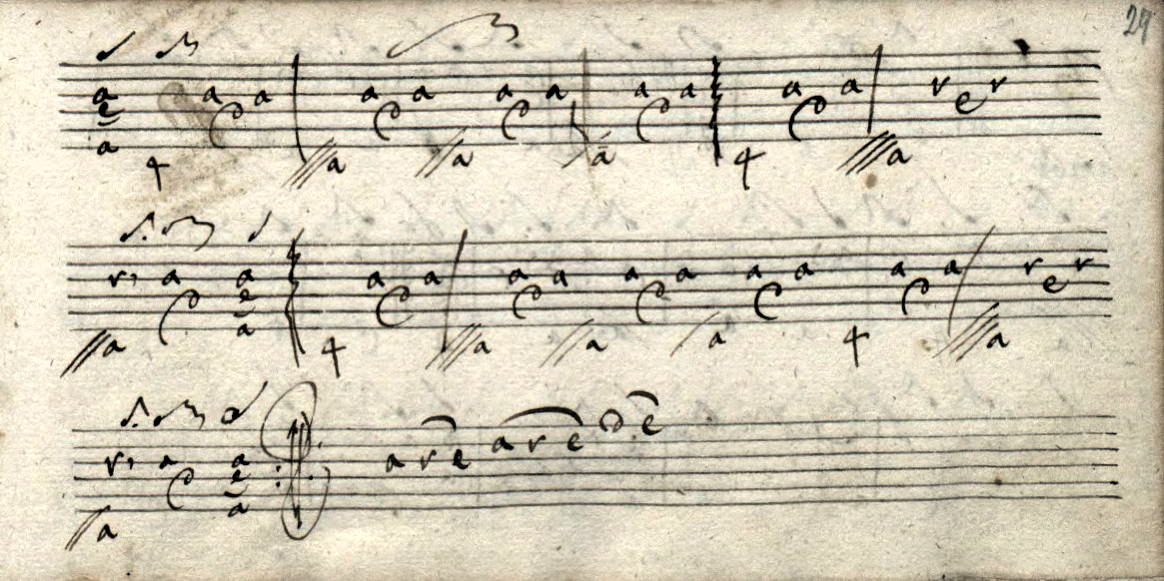 29
a e a 4 a C a ///a a C a //a a C a /a a C a 4 a C a ///a r e r
//a r a C a e a 4 a C a ///a a C a //a a C a /a a C a 4 a C a ///a r e r
//a r a C a e a a r e a r e d e